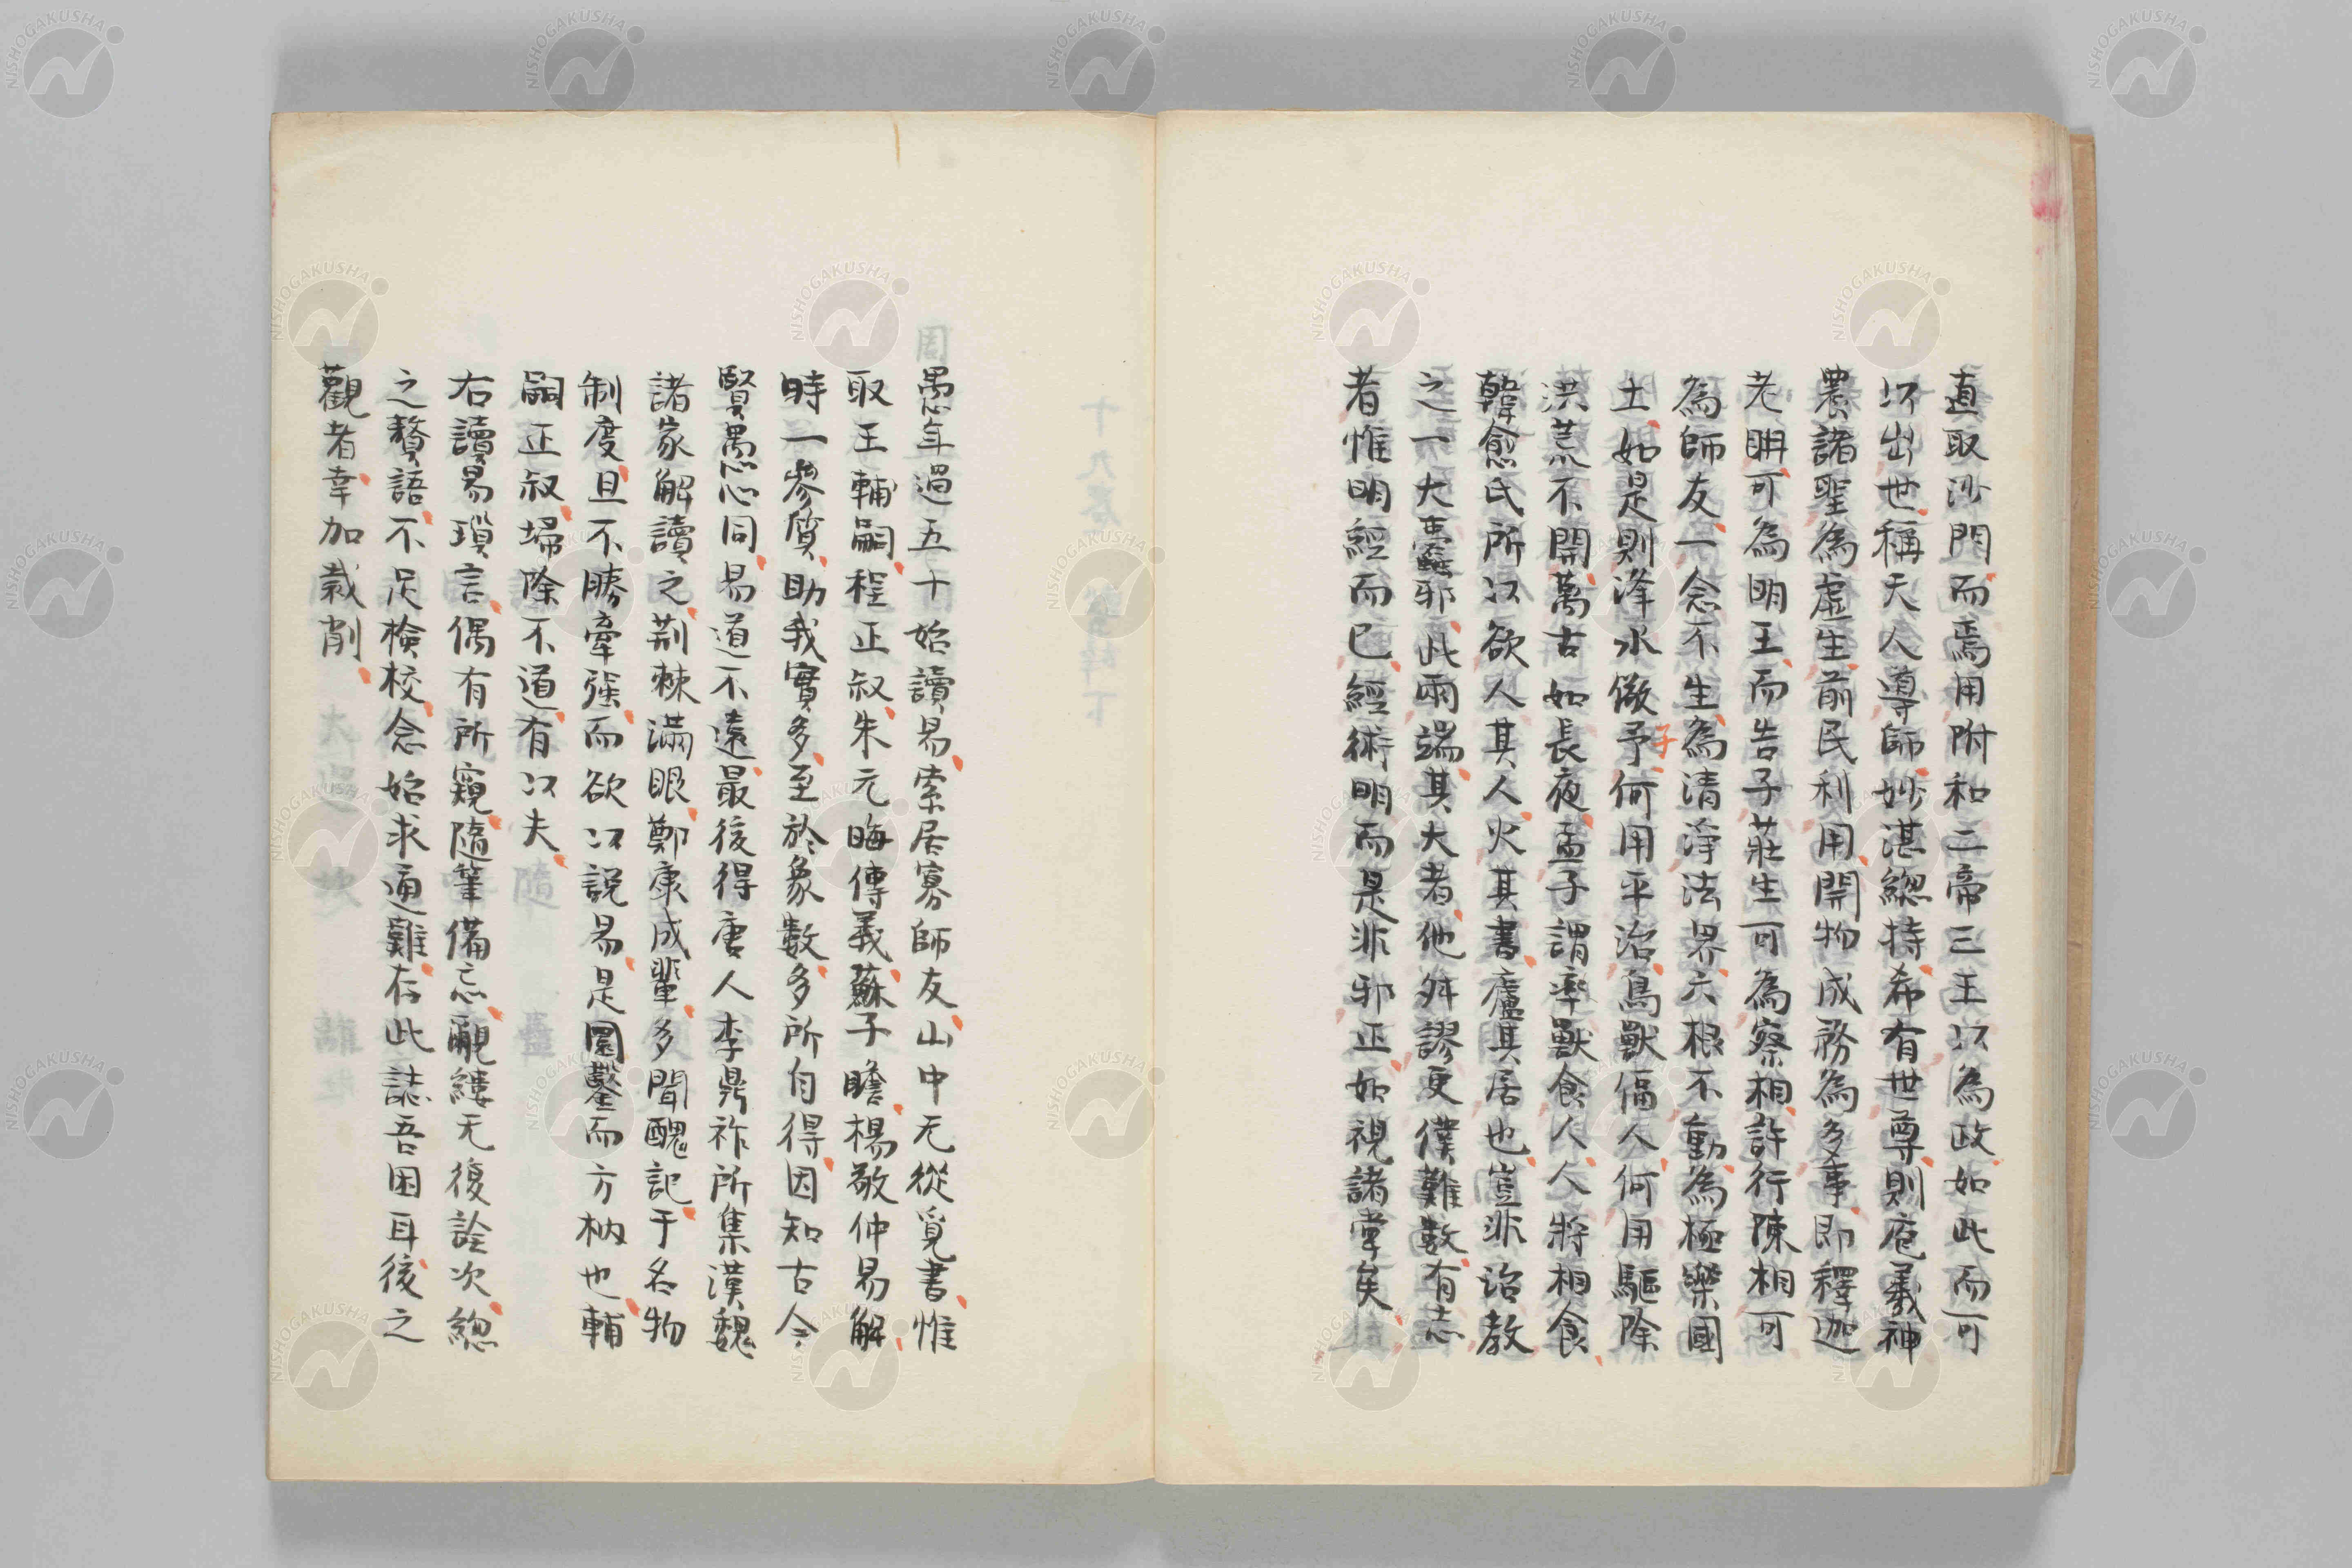 直取沙門而焉用附和二帝三王以為政如此而可
以出世稱天人導師妙湛緫持希有世尊則庖羲神
農諸聖為虛生前民利用開物成務為多事即釋迦
老聃可為明王而告子莊生可為察相許行陳相可
為師友一念不生為清淨法界六根不動為極樂國
土如是則洚水儆予何用平治鳥獸偪人何用驅除
子
洪荒不開萬古如長夜孟子謂率獸食人人將相食
韓愈氏所以欲人其人火其書廬其居也豈非治教
之一大蠹邪此兩端其大者他舛謬更僕難數有志
者惟明經而已經術明而是非邪正如視諸掌矣
愚年過五十始讀易索居寡師友山中无從覓書惟
取王輔嗣程正叔朱元晦傳義蘇子瞻楊敬仲易解
時一參質助我實多至於象數多所自得因知古今
賢愚心同易道不遠最後得唐人李鼎祚所集漢魏
諸家解讀之荊棘滿眼鄭康成輩多聞醜記于名物
制度且不勝牽强而欲以説易是圜鑿而方枘也輔
嗣正叔埽除不道有以夫
右讀易瑣言偶有所窺隨筆備忘覼縷无復詮次緫
之贅語不足檢校念始求通難存此誌吾困耳後之
觀者幸加裁削
NISHOGAKUSHA